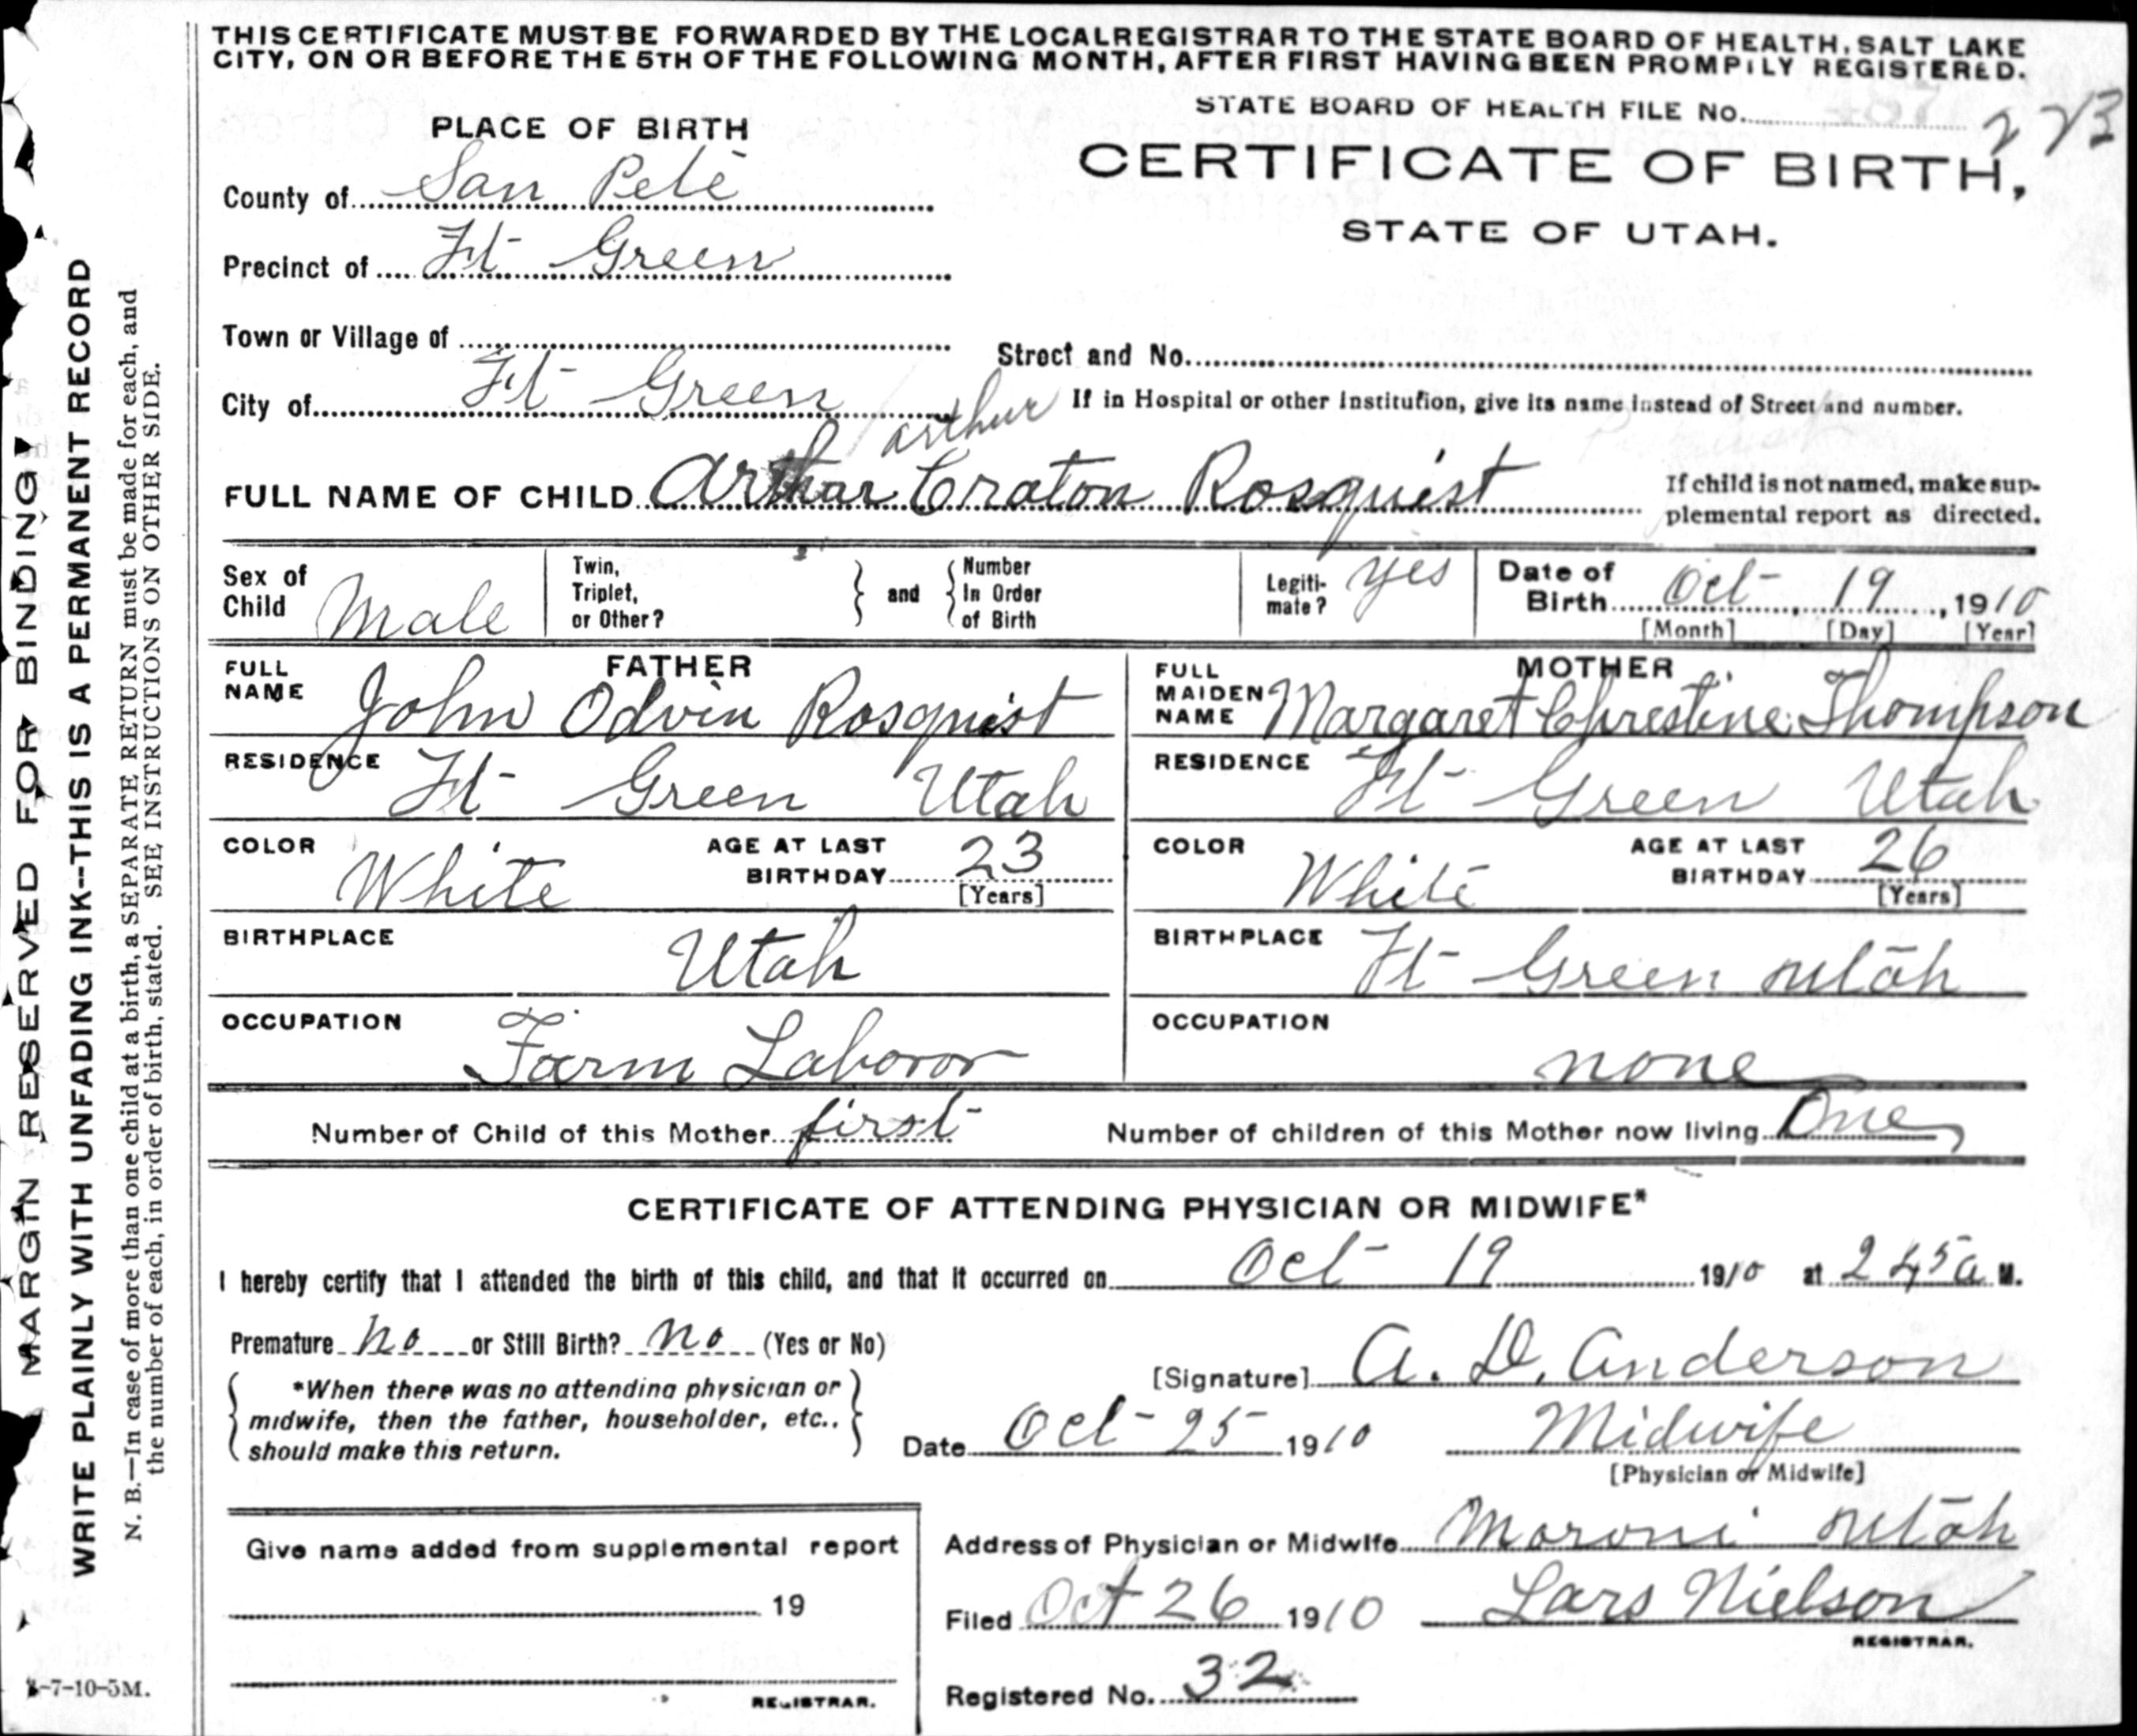 THIS CERTIFICATE MUST BE FORWARDED BY THE LOCAL REGISTRAR TO THE STATE BOARD OF HEALTH, SALT LAKE
CITY, ON OR BEFORE THE 5TH OF THE FOLLOWING MONTH, AFTER FIRST HAVING BEEN PROMPILY REGISTERED.
STATE BOARD OF HEALTH FILE No. 223
PLACE OF BIRTH
CERTIFICATE OF BIRTH,
STATE OF UTAH.
County of San Pete
Precinct of Ft Green
Town or Village of
Street and No.
City of Ft Green
If in Hospital or other Institution, give its name instead of Street and number.
arthur
FULL NAME OF CHILD Arthur Craton Rosquist
If child is not named, make sup-
plemental report as directed.
Sex of Child Male
Twin, Triplet, or Other?
and
Number In Order of Birth
Legiti-mate? yes
Date of Birth Oct 19, 1910
[Month] [Day] [Year]
FATHER
FULL NAME John Odvin Rosquist
RESIDENCE Ft Green Utah
COLOR White
AGE AT LAST BIRTHDAY 23
[Years]
BIRTHPLACE Utah
OCCUPATION Farm Laboror
MOTHER
FULL MAIDEN NAME Margaret Chrestine Thompson
RESIDENCE Ft Green Utah
COLOR White
AGE AT LAST BIRTHDAY 26
[Years]
BIRTHPLACE Ft Green utah
OCCUPATION none
Number of Child of this Mother first
Number of children of this Mother now living One
CERTIFICATE OF ATTENDING PHYSICIAN OR MIDWIFE*
I hereby certify that I attended the birth of this child, and that it occurred on Oct 19 1910 at 245 a M.
Premature no or Still Birth? no (Yes or No)
*When there was no attending physician or
midwife, then the father, householder, etc.,
should make this return.
[Signature] A. D. Anderson
Date Oct 25 1910 Midwife
[Physician or Midwife]
Give name added from supplemental report
19
REGISTRAR.
Address of Physician or Midwife Moroni utah
Filed Oct 26 1910 Lars Nielson
REGISTRAR.
Registered No. 32
MARGIN RESERVED FOR BINDING
WRITE PLAINLY WITH UNFADING INK--THIS IS A PERMANENT RECORD
N. B.—In case of more than one child at a birth, a SEPARATE RETURN must be made for each, and
the number of each, in order of birth, stated. SEE INSTRUCTIONS ON OTHER SIDE.
-7-10-5M.